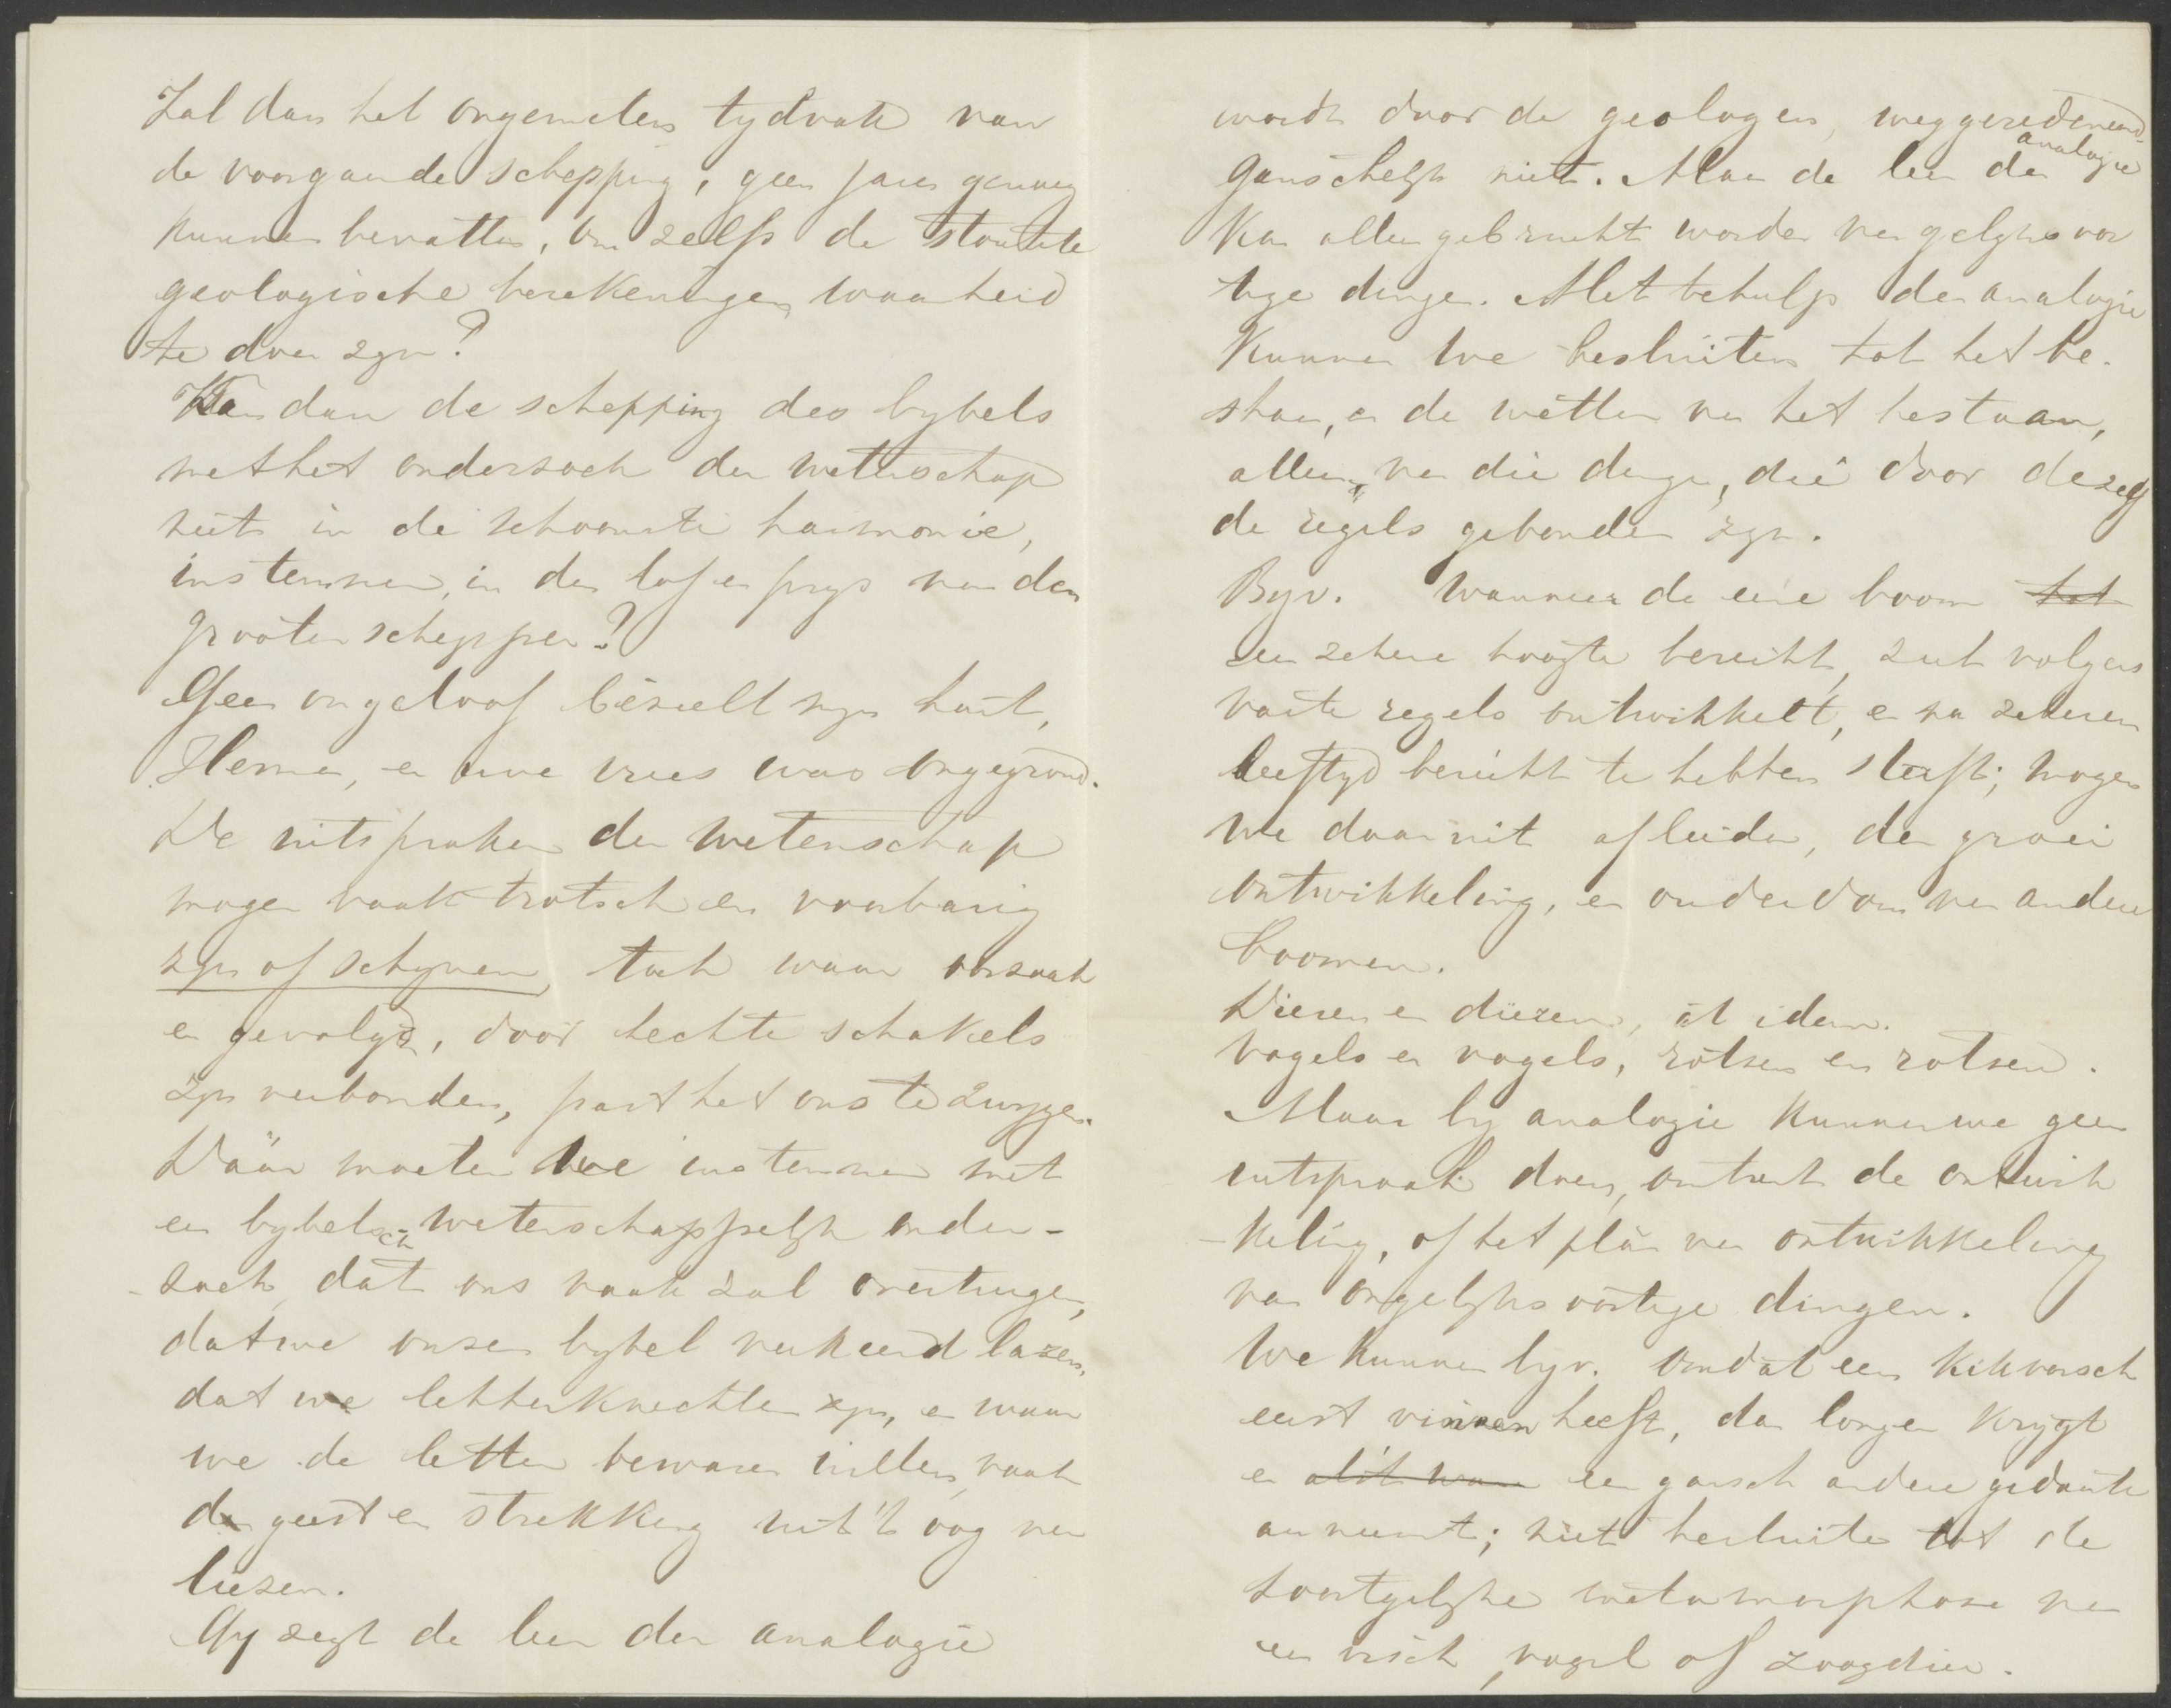 Zal dan het ongemeten tydvak van
de voorgaande schepping, geen jaren genoeg
kunnen bevatten, om zelfs de stoutste
geologische berekeningen waarheid
te doen zyn?
Kan dan de schepping des bybels
met het onderzoek der wetenschap
niet in de schoonste harmonie,
instemmen, in den lof en prys van den
grooten schepper?
Geen ongeloof bezielt myn hart,
Hemma, en uwe vrees was ongegrond.
De uitspraken der wetenschap
mogen vaak trotsch en voorbarig
zyn of schynen, toch waar oorzaak
en gevolg, door hechte schakels
zyn verbonden, past het ons te zwygen.
Dáár moeten we instemmen met
een bybelsch-wetenschappelyk onder-
zoek, dat ons vaak zal overtuigen,
dat we onzen bybel verkeerd lazen,
dat we letterknechten zyn, en waar
we de letter bewaren willen, vaak
den geest en strekking uit 't oog ver
liezen.
Gy zegt de leer der analogie
wordt door de geologen, weggeredeneerd-
ganschelyk niet. Maar de leer der analogie
kan alleen gebruikt worden van gelyksoor
tige dingen. Met behulp der analogie
kunnen we besluiten tot het be-
staan, en de wetten van het bestaan,
alleen van die dingen, die door dezelf
de regels gebonden zyn.
Byv. Wanneer de eene boom tot
een zekere hoogte bereikt, zich volgens
vaste regels ontwikkelt, en na zekeren
leeftyd bereikt te hebben sterft; mogen
we daaruit afleiden, den groei
ontwikkeling, en ouderdom van andere
boomen.
Dieren en dieren, at idem.
vogels en vogels, rotsen en rotsen.
Maar by analogie kunnen we geen
uitspraak doen, omtrent de ontwik
-keling, of het plan van ontwikkeling
van ongelyksoortige dingen.
We kunnen byv. omdat een kikvorsch
eerst vinnen heeft, dan longen krygt
en een gansch andere gedaante
aanneemt; niet besluiten tot de
soortgelyke metamorphose van
een visch, vogel of zoogdier.